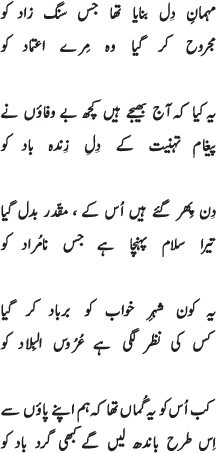 مہمانِ دِل بنایا تھا جس سنگ زاد کو
مجروح کر گیا وہ مِرے اعتماد کو
یہ کیا کہ آج بھیجے ہیں کچھ بے وفاؤں نے
پیغام تہنیت کے دِلِ زندہ باد کو
دِن پھر گئے ہیں اُس کے ، مقدّر بدل گیا
تیرا سلام پہنچا ہے جس نامُراد کو
یہ کون شہرِ خواب کو برباد کر گیا
کس کی نظر لگی ہے عرُوس البِلاد کو
کب اُس کو یہ گماں تھا کہ ہم اپنے پاؤں سے
اِس طرح باندھ لیں گے کبھی گرد باد کو